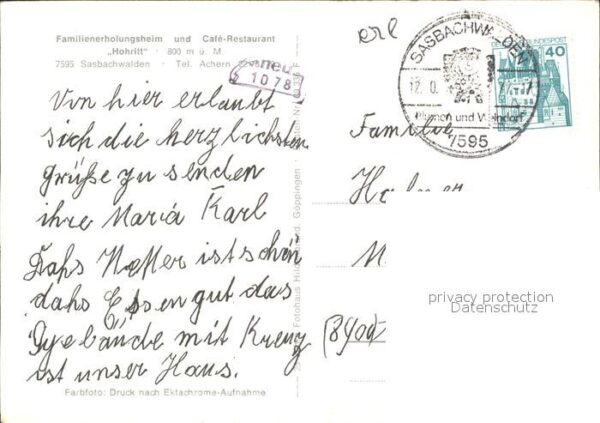 Familienerholungsheim und Café-Restaurant
„Hohritt" · 800 m ü. M.
7595 Sasbachwalden · Tel. Achern
1078
Von hier erlaubt
sich die herzlichsten
grüße zu senden
ihre Maria Karl
Dahs Wetter ist schön
dahs Essen gut das
Gebäude mit Kreuz
ist unser Haus.
Farbfoto: Druck nach Ektachrome-Aufnahme
Fotohaus Göppingen
erl
SASBACHWALDEN
Blumen und Weindorf
7595
BUNDESPOST
40
Familie
privacy protection
Datenschutz